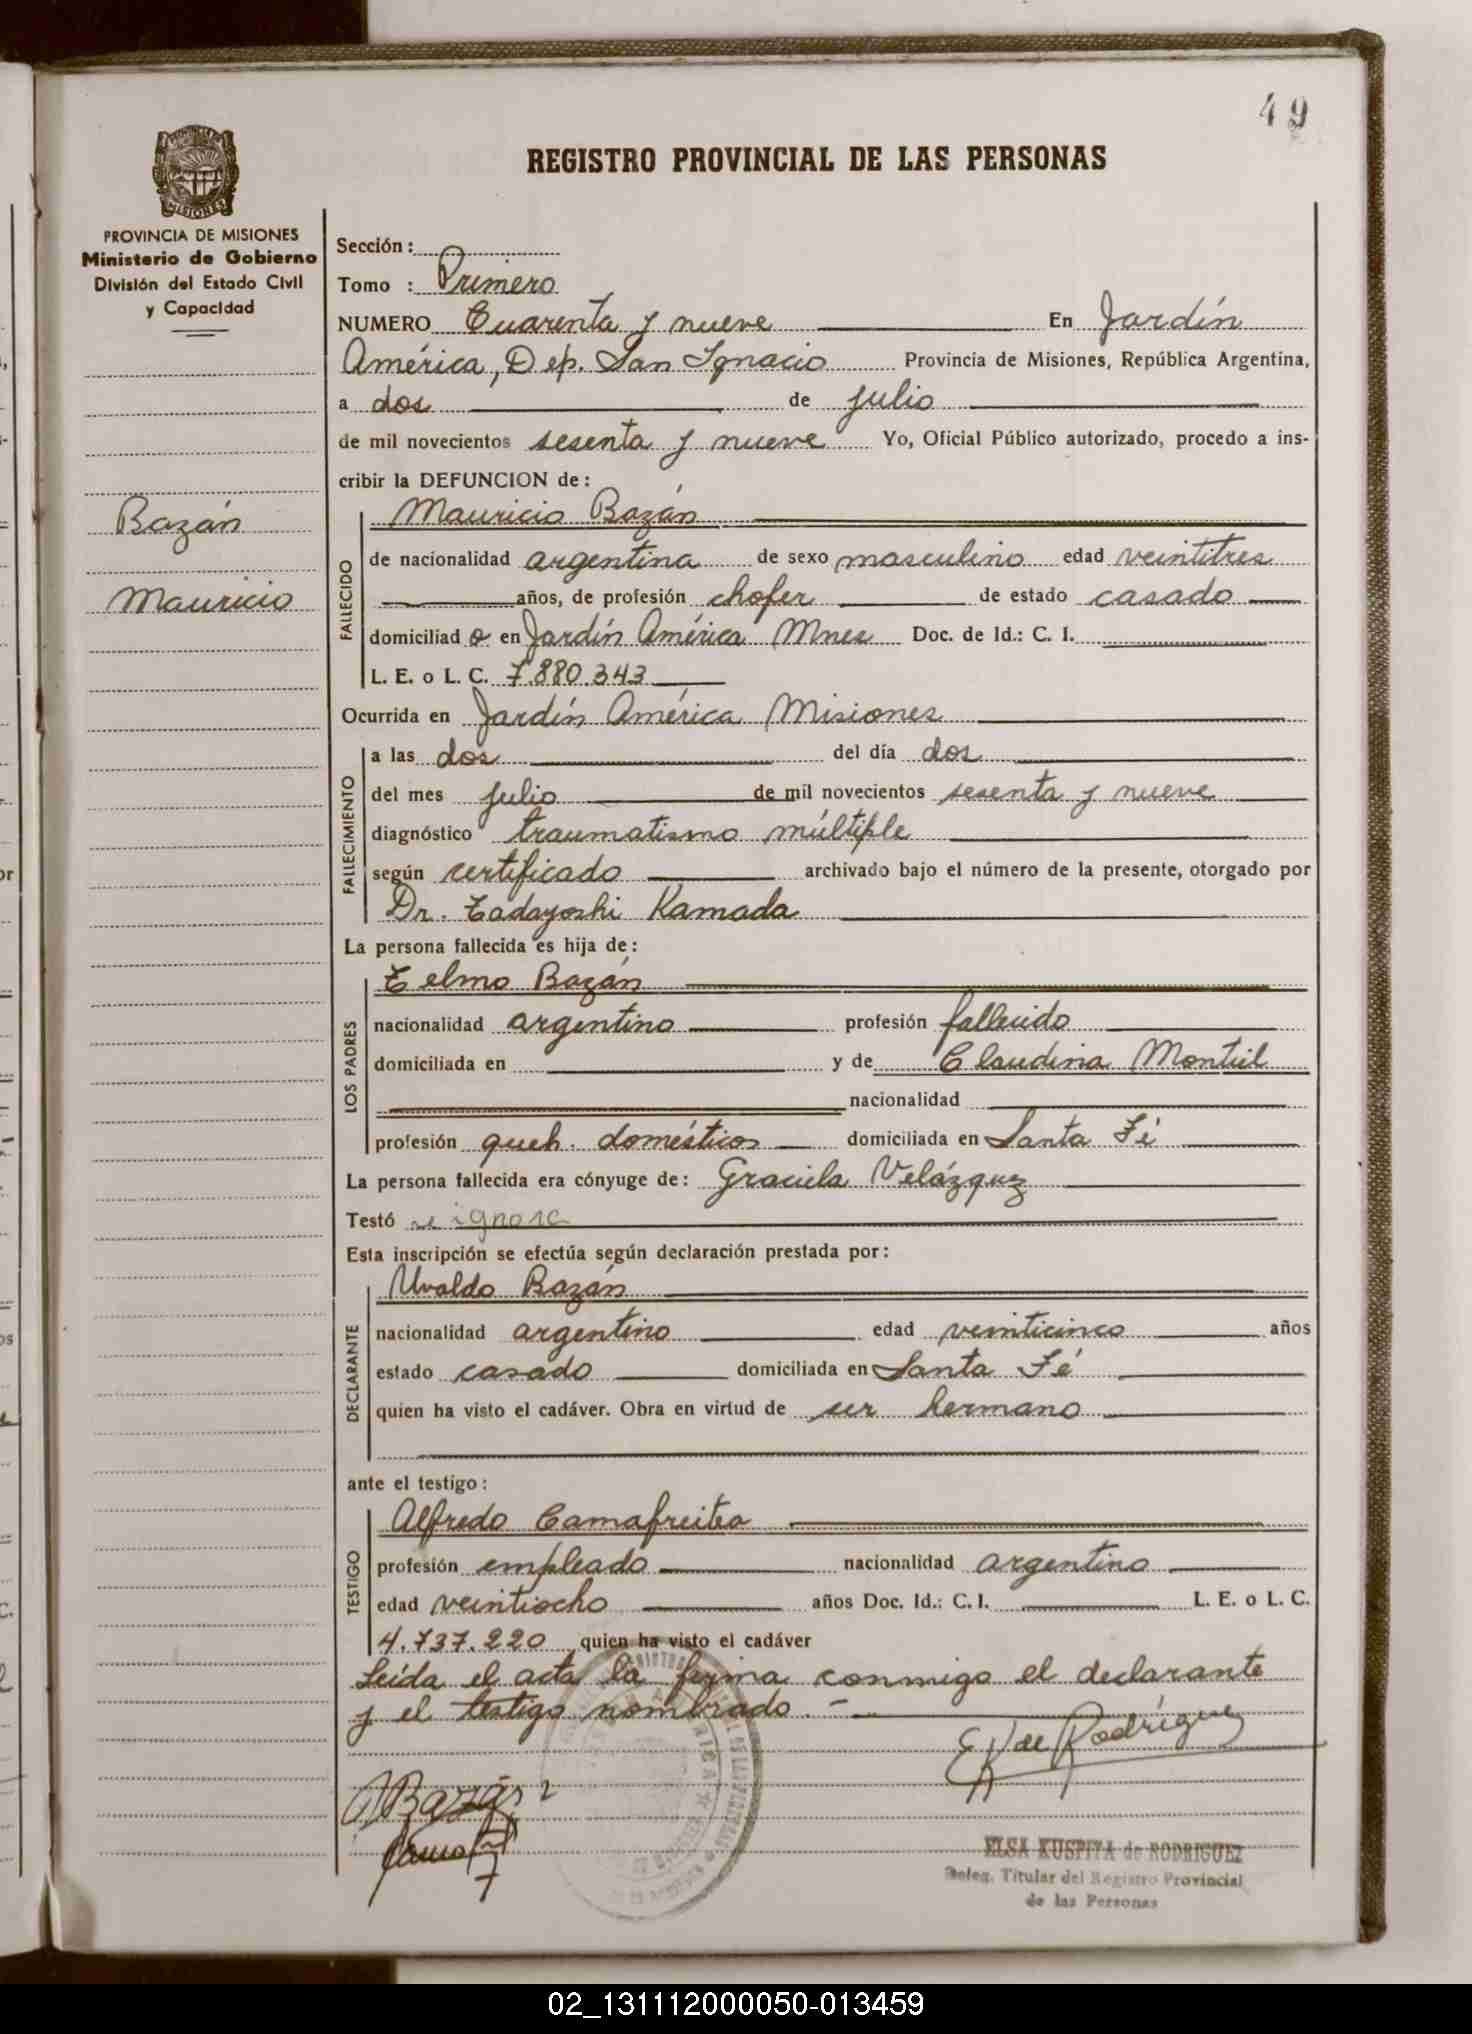 49
REGISTRO PROVINCIAL DE LAS PERSONAS
PROVINCIA DE MISIONES
Ministerio de Gobierno
División del Estado Civil
y Capacidad
Bazán
Mauricio
Sección:
Tomo : Primero
NUMERO Cuarenta y nueve En Jardín
América, Dep. San Ignacio Provincia de Misiones, República Argentina,
a dos de julio
de mil novecientos sesenta y nueve Yo, Oficial Público autorizado, procedo a ins-
cribir la DEFUNCION de:
Mauricio Bazán
FALLECIDO
de nacionalidad argentina de sexo masculino edad veintitres
años, de profesión chofer de estado casado
domiciliad o en Jardín América Mnes Doc. de Id.: C. I.
L. E. o L. C. 7.880.343
Ocurrida en Jardín América Misiones
FALLECIMIENTO
a las dos del día dos
del mes julio de mil novecientos sesenta y nueve
diagnóstico traumatismo múltiple
según certificado archivado bajo el número de la presente, otorgado por
Dr. Tadayoshi Kamada
La persona fallecida es hija de:
LOS PADRES
Telmo Bazán
nacionalidad argentino profesión fallecido
domiciliada en y de Claudina Montiel
nacionalidad
profesión queh. domésticos domiciliada en Santa Fé
La persona fallecida era cónyuge de: Graciela Velázquez
Testó se ignora
Esta inscripción se efectúa según declaración prestada por:
DECLARANTE
Uvaldo Bazán
nacionalidad argentino edad veinticinco años
estado casado domiciliada en Santa Fé
quien ha visto el cadáver. Obra en virtud de ser hermano
ante el testigo:
TESTIGO
Alfredo Camafreita
profesión empleado nacionalidad argentino
edad veintiocho años Doc. Id.: C. I. L. E. o L. C.
4.737.220 quien ha visto el cadáver
Leída el acta la firma conmigo el declarante
y el testigo nombrado.-
EK de Rodríguez
Bazán
ELSA KUSPITA de RODRIGUEZ
Deleg. Titular del Registro Provincial
de las Personas
02_131112000050-013459